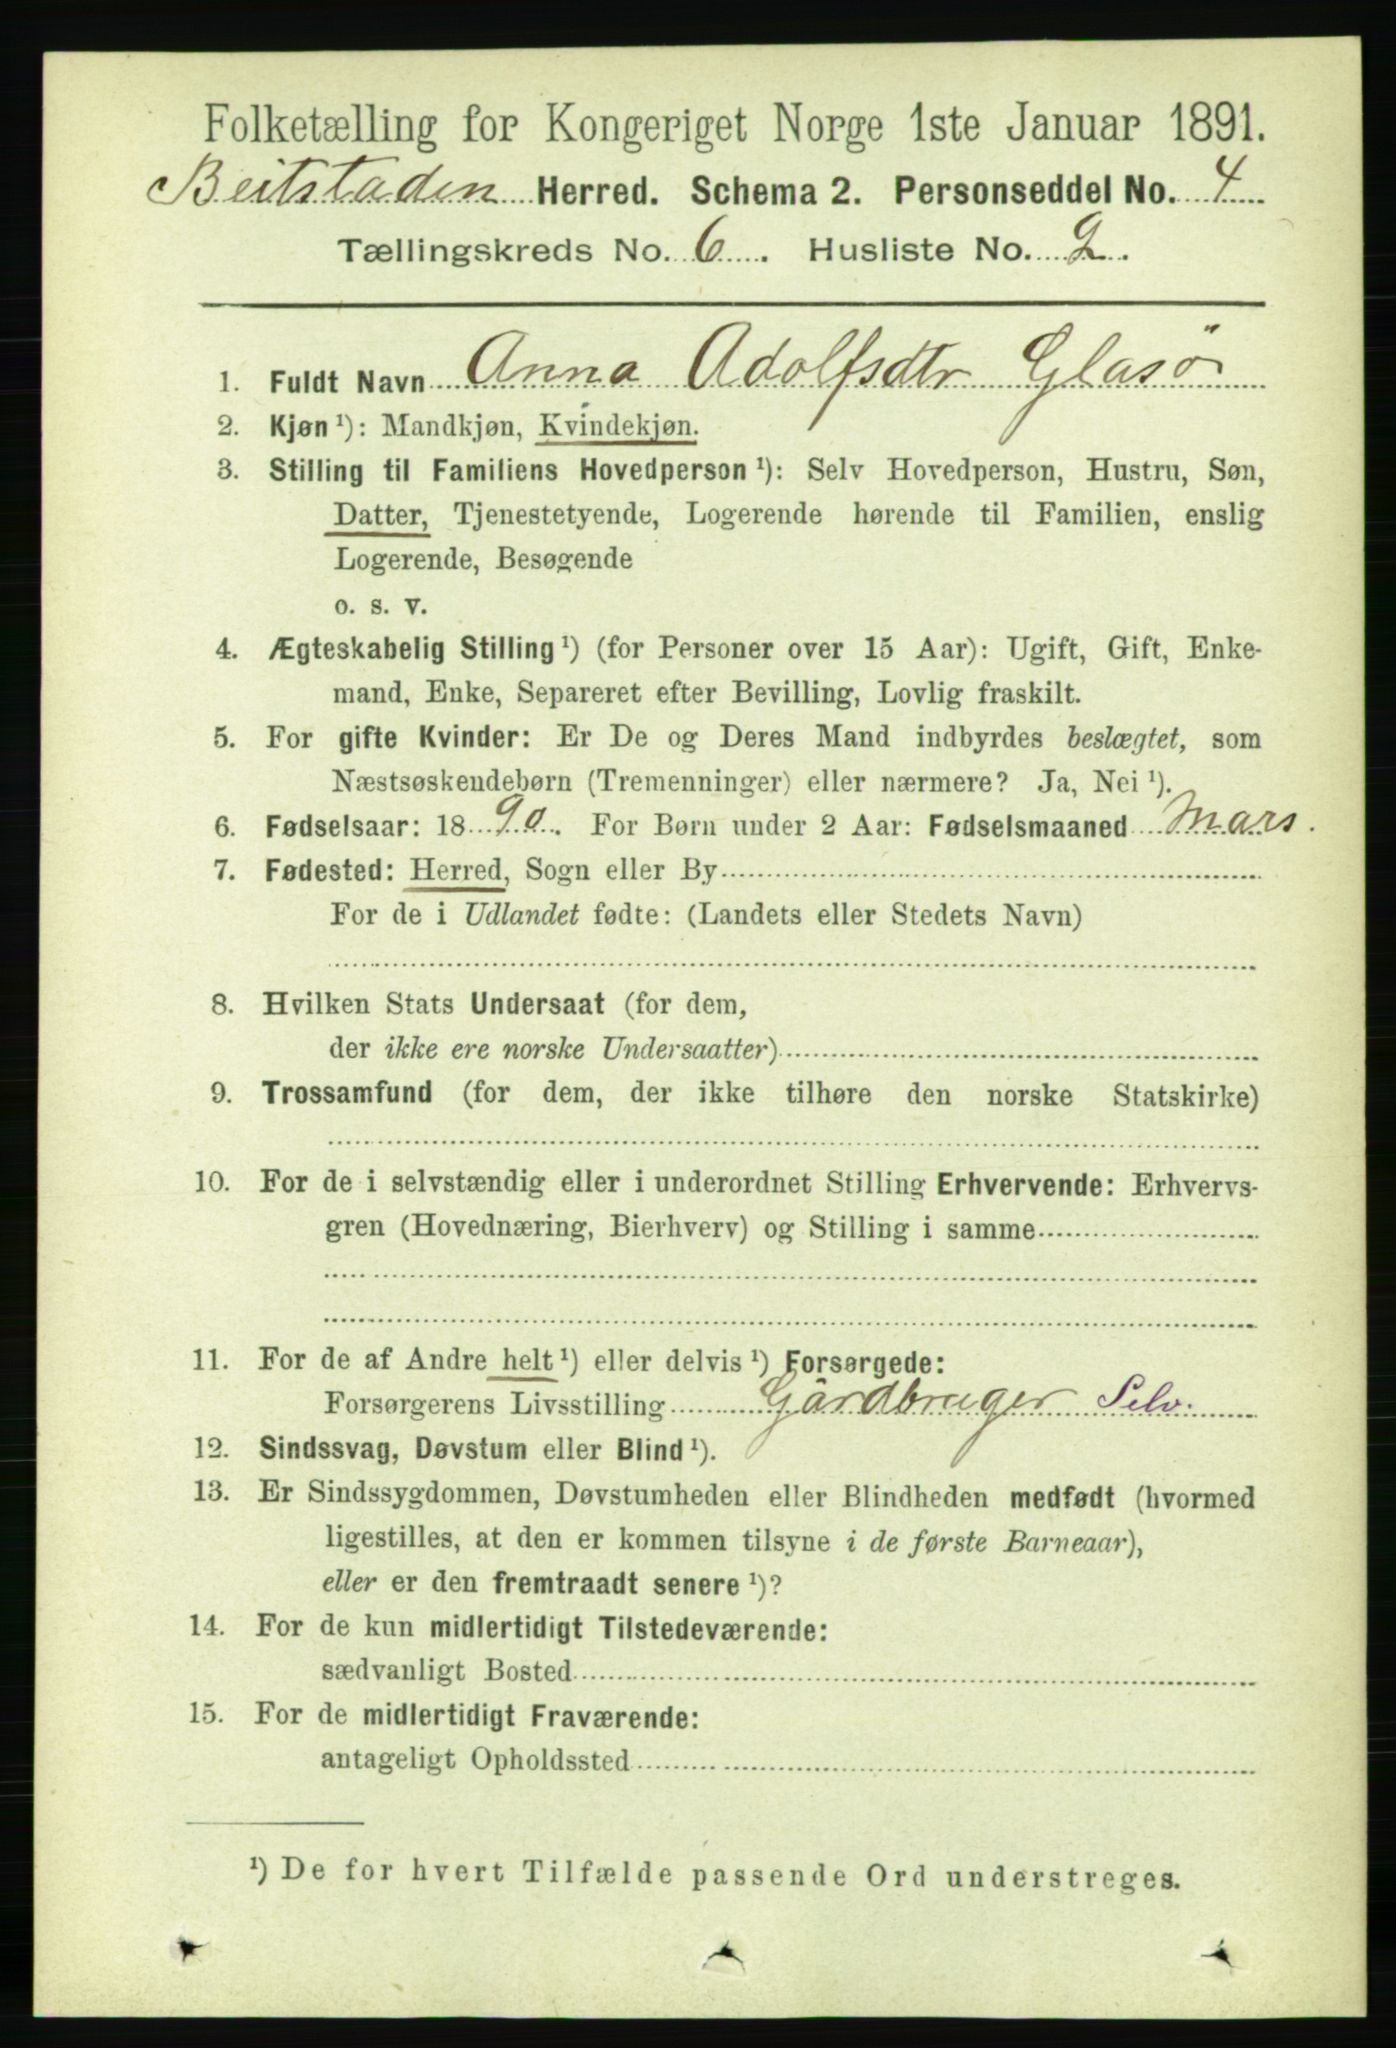 Folketælling for Kongeriget Norge 1ste Januar 1891.
Beitstaden Herred. Schema 2. Personseddel No. 4
Tællingskreds No. 6. Husliste No. 2.
1. Fuldt Navn Anna Adolfsdtr Glasö
2. Kjøn ¹): Mandkjøn, Kvindekjøn.
3. Stilling til Familiens Hovedperson ¹): Selv Hovedperson, Hustru, Søn,
Datter, Tjenestetyende, Logerende hørende til Familien, enslig
Logerende, Besøgende
o. s. v.
4. Ægteskabelig Stilling ¹) (for Personer over 15 Aar): Ugift, Gift, Enke-
mand, Enke, Separeret efter Bevilling, Lovlig fraskilt.
5. For gifte Kvinder: Er De og Deres Mand indbyrdes beslægtet, som
Næstsøskendebørn (Tremenninger) eller nærmere? Ja, Nei ¹).
6. Fødselsaar: 1890. For Børn under 2 Aar: Fødselsmaaned Mars.
7. Fødested: Herred, Sogn eller By
For de i Udlandet fødte: (Landets eller Stedets Navn)
8. Hvilken Stats Undersaat (for dem,
der ikke ere norske Undersaatter)
9. Trossamfund (for dem, der ikke tilhøre den norske Statskirke)
10. For de i selvstændig eller i underordnet Stilling Erhvervende: Erhvervs-
gren (Hovednæring, Bierhverv) og Stilling i samme
11. For de af Andre helt ¹) eller delvis ¹) Forsørgede:
Forsørgerens Livsstilling Gårdbruger Selv.
12. Sindssvag, Døvstum eller Blind ¹).
13. Er Sindssygdommen, Døvstumheden eller Blindheden medfødt (hvormed
ligestilles, at den er kommen tilsyne i de første Barneaar),
eller er den fremtraadt senere ¹)?
14. For de kun midlertidigt Tilstedeværende:
sædvanligt Bosted
15. For de midlertidigt Fraværende:
antageligt Opholdssted
¹) De for hvert Tilfælde passende Ord understreges.